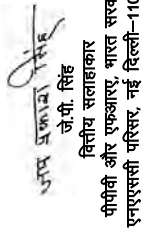 जय प्रकाश सिंह
जे.पी. सिंह
वित्तीय सलाहाकार
पीपीवी और एफआरए, भारत सरव
एनएएससी परिसर, नई दिल्ली-110